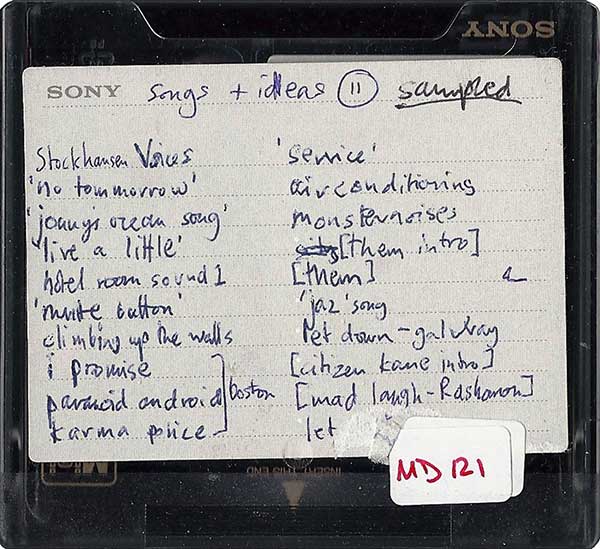 SONY
SONY songs + ideas 11 sampled
Stockhausen Voices
'no tommorrow'
'jonny's ocean song'
'live a little'
hotel room sound 1
'mute button'
climbing up the walls
i promise
paranoid android
boston
karma
'service'
airconditioning
monsternoises
[them intro]
[them]
'jaz' song
let down -
[citizen kane intro]
[mad laugh - Rashomon]
let
INSERT THIS END
MD 121